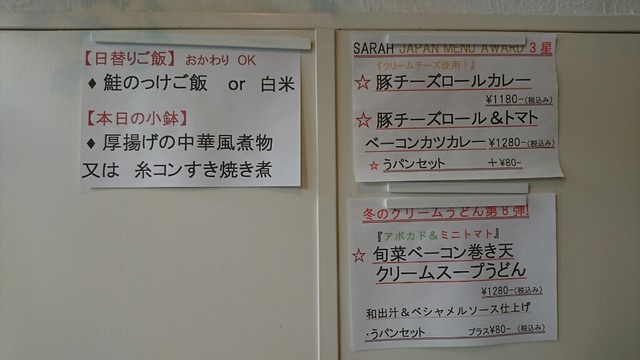 【日替りご飯】 おかわり OK
♦ 鮭のっけご飯 or 白米
【本日の小鉢】
♦ 厚揚げの中華風煮物
又は 糸コンすき焼き煮
SARAH JAPAN MENU AWARD 3星
『クリームチーズ使用！』
☆ 豚チーズロールカレー
¥1180-(税込み)
☆ 豚チーズロール＆トマト
ベーコンカツカレー ¥1280-(税込み)
☆ うパンセット ＋¥80-
冬のクリームうどん第8弾!
『アボカド＆ミニトマト』
☆ 旬菜ベーコン巻き天
クリームスープうどん
¥1280-(税込み)
和出汁＆ベシャメルソース仕上げ
・うパンセット プラス¥80- (税込み)